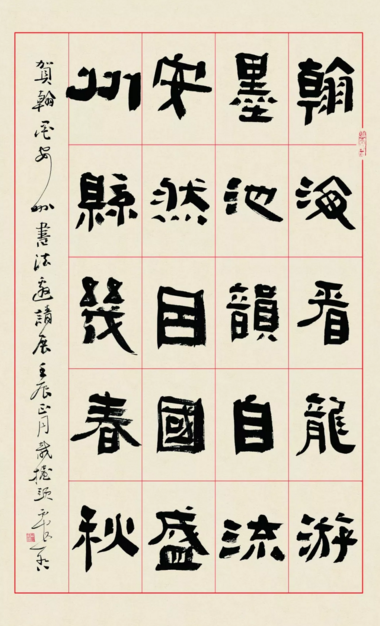 翰海看龍游
墨池韻自流
安然國盛
州縣幾春秋
賀翰墨安州書法邀請展壬辰正月